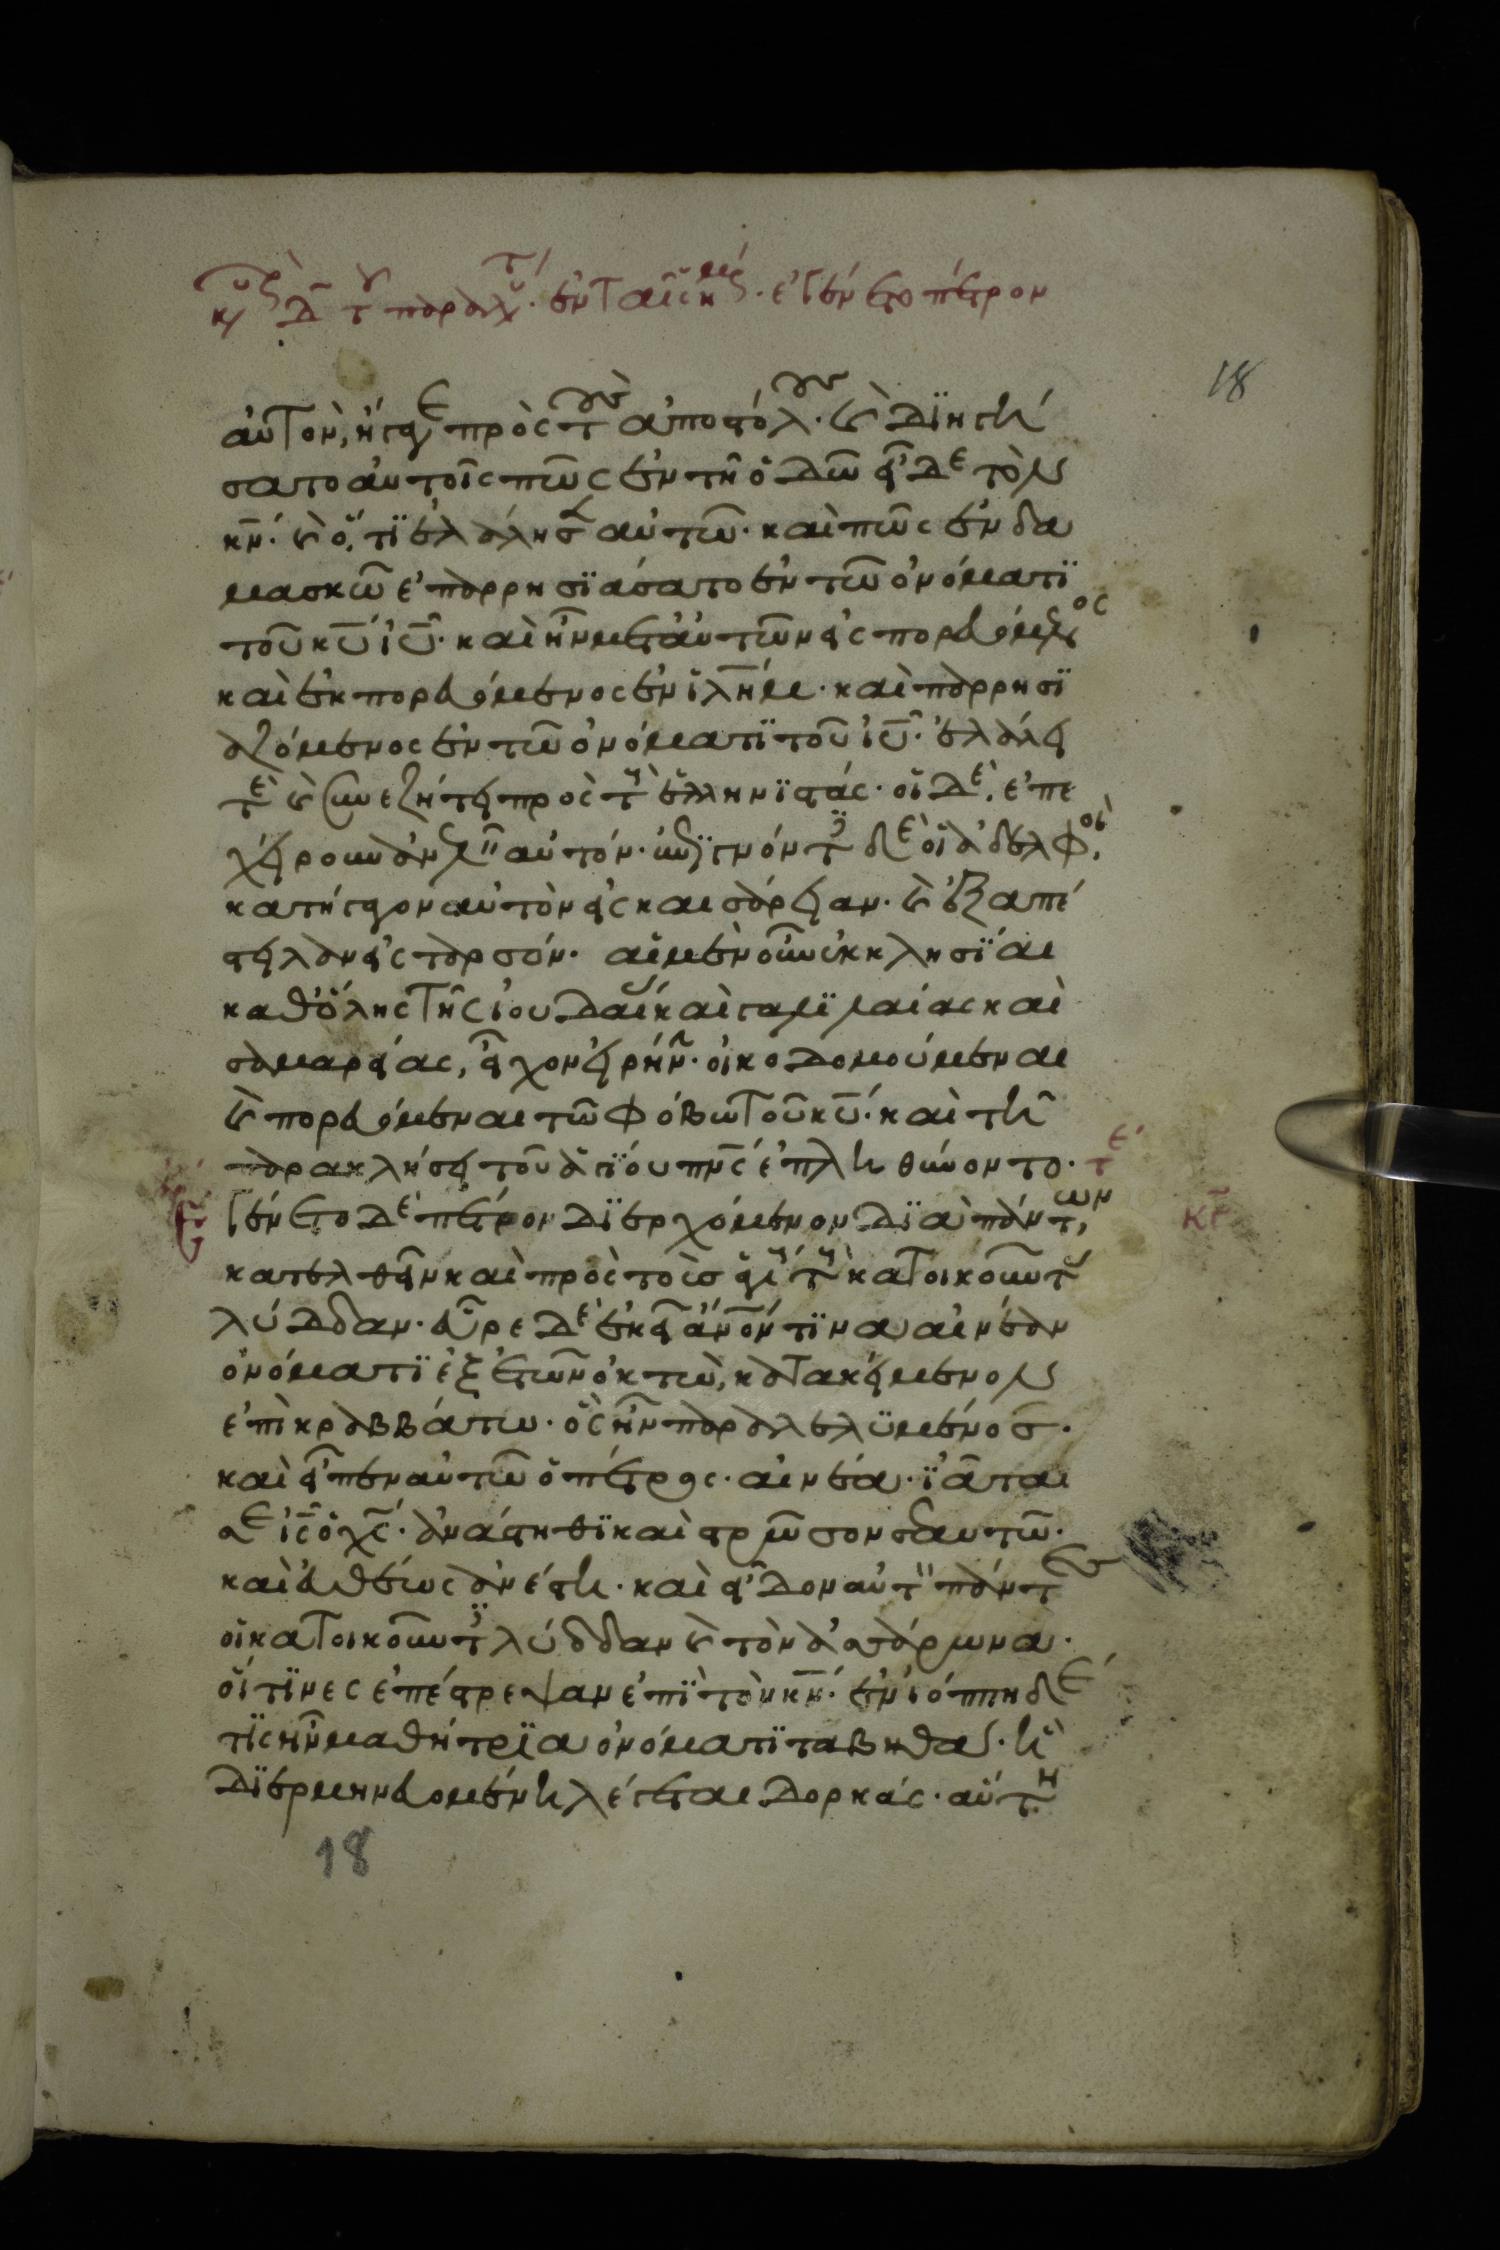 κυ δ τ παραλυτ. ἐν ταῖς ἡμέραις. ἐγένετο πέτρον
18
αὐτὸν, ἤγαγε πρὸς τοὺς ἀποστόλους. καὶ διηγή
σατο αὐτοῖς πῶς ἐν τῇ ὁδῶ εἶδε τὸν
κν. καὶ ὅτι ἐλάλησεν αὐτῶ. καὶ πῶς ἐν δα
μασκῶ ἐπαρρησϊάσατο ἐν τῶ ὀνόματϊ
τοῦ κυ ιυ. καὶ ἦν μετ' αὐτῶν εἰσπορευόμενος
καὶ ἐκπορευόμενος ἐν ϊλημ. καὶ παρρησϊ
αζόμενος ἐν τῶ ὀνόματϊ τοῦ ιυ. ἐλάλει
τὲ καὶ συνεζήτει πρὸς τοὺς ἑλληνϊστάς. οἱ δὲ, ἐπε
χείρουν ἀνελεῖν αὐτόν. ἐπϊγνόντες δὲ οἱ ἀδελφοὶ,
κατήγαγον αὐτὸν εἰς καισάρειαν. καὶ ἐξαπέ
στειλαν εἰς ταρσόν. αἱ μὲν οὖν ἐκκλησϊαι
καθ' ὅλης τῆς ϊουδαίας καὶ γαλϊλαίας καὶ
σαμαρείας, εἶχον εἰρήνην. οἰκοδομούμεναι
καὶ πορευόμεναι τῶ φόβω τοῦ κυ. καὶ τῇ
παρακλήσει τοῦ ἁγϊου πνς ἐπληθύνοντο. τε
Ἐγένετο δὲ πέτρον δϊερχόμενον δϊὰ πάντων, κε
κατελθεῖν καὶ πρὸς τοὺς ἁγίους τοὺς κατοικοῦντας
λύδδαν. εὗρε δὲ ἐκεῖ ἄνον τϊνα αἰνέαν
ὀνόματϊ ἐξ ἐτῶν ὀκτὼ, κατακείμενον
ἐπὶ κραββάτω. ὃς ἦν παραλελϋμένος.
καὶ εἶπεν αὐτῶ ὁ πέτρος. αἰνέα. ϊᾶται
σε ις ὁ χς. ἀνάστηθϊ καὶ στρῶσον σεαυτῶ.
καὶ εὐθέως ἀνέστη. καὶ εἶδον αὐτὸν πάντες
οἱ κατοικοῦντες λύδδαν καὶ τὸν ἀσσάρωνα.
οἵτϊνες ἐπέστρεψαν ἐπϊ τὸν κν. ἐν ϊόππη δέ
τϊς ἦν μαθήτρϊα ὀνόματϊ ταβηθα. ἣ
δϊερμηνευομένη λέγεται δορκάς. αὕτη
18